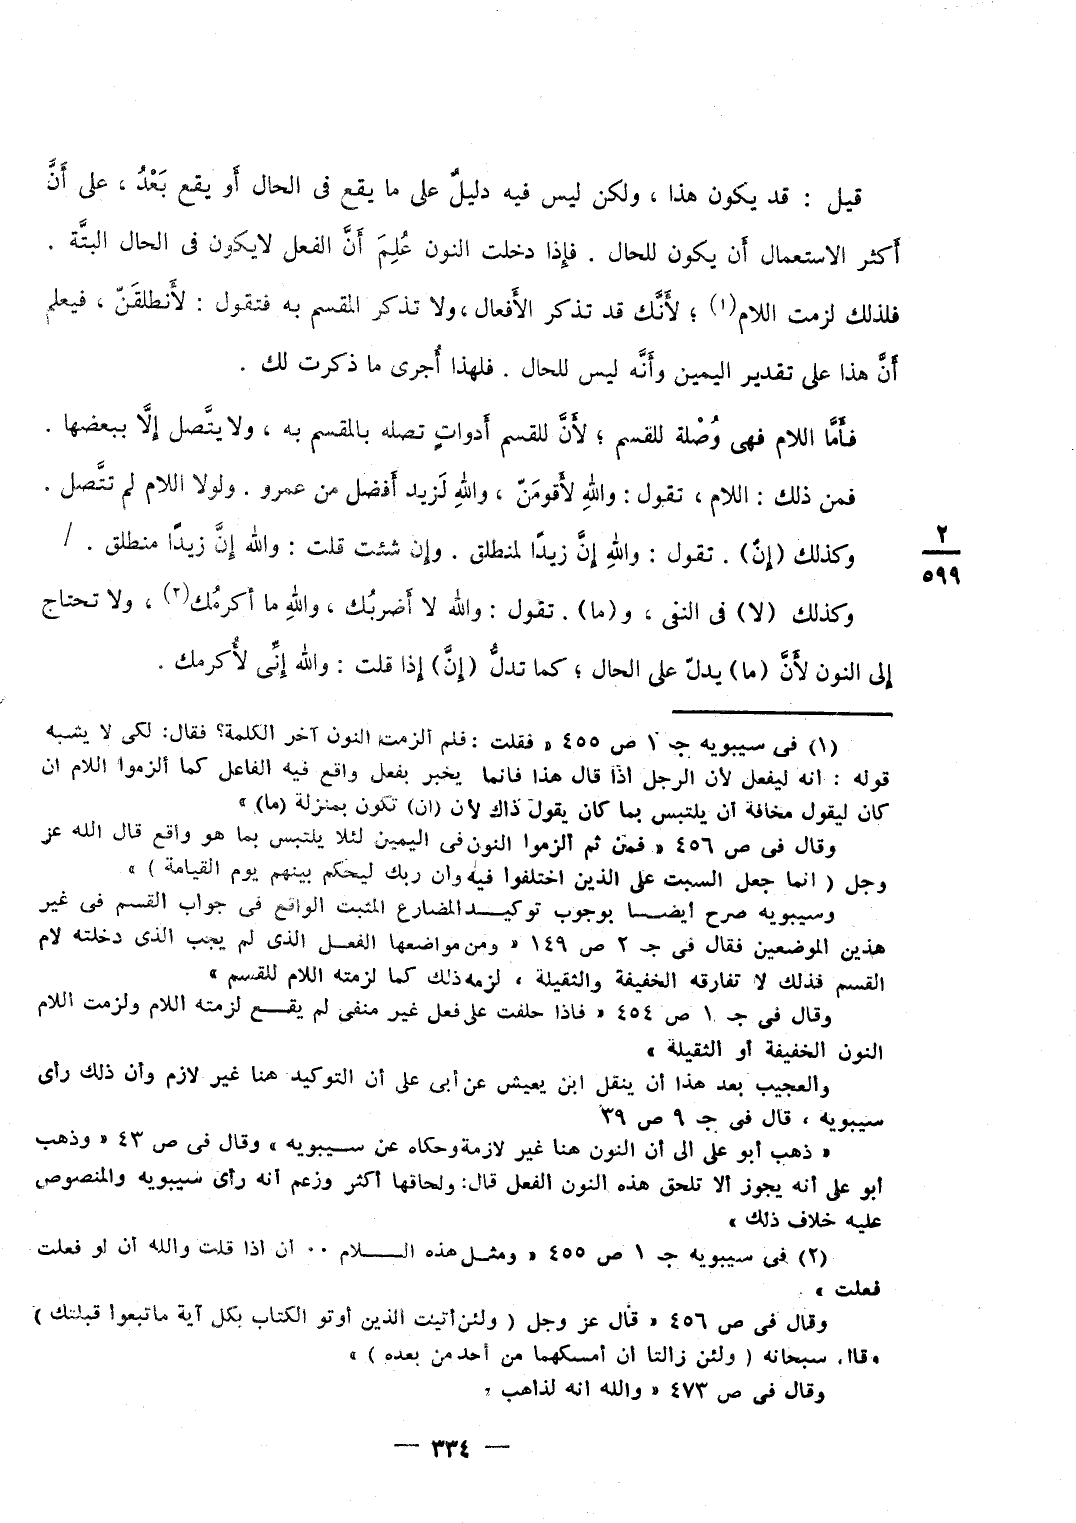 قيل : قد يكون هذا ، ولكن ليس فيه دليلٌ على ما يقع فى الحال أَو يقع بَعْدُ ، على أَنَّ
أَكثر الاستعمال أَن يكون للحال . فإِذا دخلت النون عُلِمَ أَنَّ الفعل لايكون فى الحال البتَّة .
فلذلك لزمت اللام(١) ؛ لأَنَّك قد تذكر الأَفعال ، ولا تذكر المقسم به فتقول : لأَنطلقَنّ ، فيعلم
أَنَّ هذا على تقدير اليمين وأَنَّه ليس للحال . فلهذا أُجرى ما ذكرت لك .
فأَمَّا اللام فهى وُصْلة للقسم ؛ لأَنَّ للقسم أَدواتٍ تصله بالمقسم به ، ولايتَّصل إلَّا ببعضها .
فمن ذلك : اللام ، تقول : واللهِ لأَقومَنّ ، واللهِ لَزيد أَفضل من عمرو . ولولا اللام لم تتَّصل .
وكذلك (إنّ) . تقول : واللهِ إنَّ زيدًا لمنطلق . وإن شئت قلت : والله إنَّ زيدًا منطلق . /
٢
٥٩٩
وكذلك (لا) فى النفى ، و(ما) . تقول : والله لا أَضربُك ، واللهِ ما أكرمُك(٢) ، ولا تحتاج
إلى النون لأَنَّ (ما) يدلّ على الحال ؛ كما تدلُّ (إنَّ) إذا قلت : والله إنِّى لأُكرمك .
(١) فى سيبويه جـ ١ ص ٤٥٥ « فقلت : فلم ألزمت النون آخر الكلمة؟ فقال: لكى لا يشبه
قوله : انه ليفعل لأن الرجل اذا قال هذا فانما يخبر بفعل واقع فيه الفاعل كما ألزموا اللام ان
كان ليقول مخافة أن يلتبس بما كان يقول ذاك لأن (ان) تكون بمنزلة (ما) »
وقال فى ص ٤٥٦ « فمن ثم ألزموا النون فى اليمين لئلا يلتبس بما هو واقع قال الله عز
وجل ( انما جعل السبت على الذين اختلفوا فيه وان ربك ليحكم بينهم يوم القيامة ) »
وسيبويه صرح أيضا بوجوب توكيد المضارع المثبت الواقع فى جواب القسم فى غير
هذين الموضعين فقال فى جـ ٢ ص ١٤٩ « ومن مواضعها الفعل الذى لم يجب الذى دخلته لام
القسم فذلك لا تفارقه الخفيفة والثقيلة ، لزمه ذلك كما لزمته اللام للقسم »
وقال فى جـ ١ ص ٤٥٤ « فاذا حلفت على فعل غير منفى لم يقع لزمته اللام ولزمت اللام
النون الخفيفة أو الثقيلة »
والعجيب بعد هذا أن ينقل ابن يعيش عن أبى على أن التوكيد هنا غير لازم وأن ذلك رأى
سيبويه ، قال فى جـ ٩ ص ٣٩
« ذهب أبو على الى أن النون هنا غير لازمة وحكاه عن سيبويه » وقال فى ص ٤٣ « وذهب
أبو على أنه يجوز ألا تلحق هذه النون الفعل قال: ولحاقها أكثر وزعم أنه رأى سيبويه والمنصوص
عليه خلاف ذلك »
(٢) فى سيبويه جـ ١ ص ٤٥٥ « ومثل هذه اللام ٠٠ أن اذا قلت والله أن لو فعلت
فعلت »
وقال فى ص ٤٥٦ « قال عز وجل ( ولئن أتيت الذين أوتو الكتاب بكل آية ماتبعوا قبلتك )
وقال سبحانه ( ولئن زالتا ان أمسكهما من أحد من بعده ) »
وقال فى ص ٤٧٣ « والله انه لذاهب »
— ٣٣٤ —